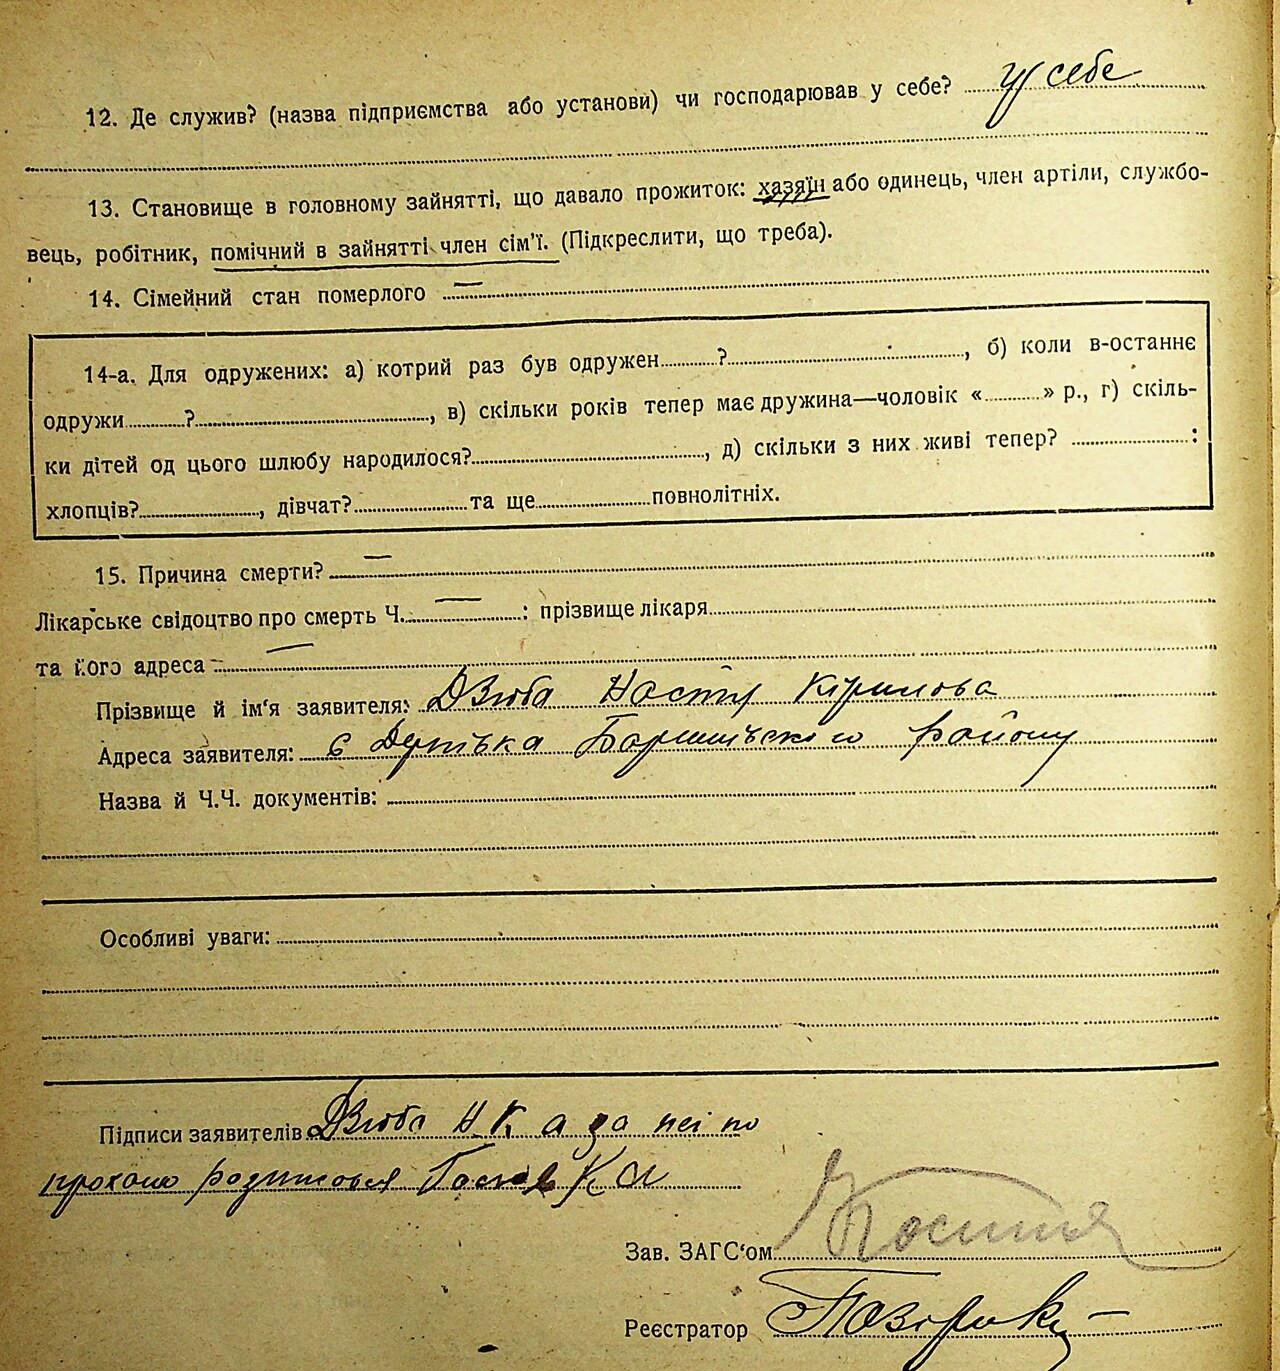 12. Де служив? (назва підприємства або установи) чи господарював у себе? у себе
13. Становище в головному зайнятті, що давало прожиток: хазяїн або одинець, член артіли, службо-
вець, робітник, помічний в зайнятті член сім'ї. (Підкреслити, що треба).
14. Сімейний стан померлого —
14-а. Для одружених: а) котрий раз був одружен ? , б) коли в-останнє
одружи ? , в) скільки років тепер має дружина—чоловік « » р., г) скіль-
ки дітей од цього шлюбу народилося? , д) скільки з них живі тепер? :
хлопців? , дівчат? та ще повнолітніх.
15. Причина смерти? —
Лікарське свідоцтво про смерть Ч. — : прізвище лікаря
та його адреса —
Прізвище й ім'я заявителя: Дзюба Настя Кірилова
Адреса заявителя: с Дернівка Баришівського району
Назва й Ч.Ч. документів:
Особливі уваги:
Підписи заявителів Дзюба Н К а за неї по
прохання
Зав. ЗАГС'ом
Реєстратор